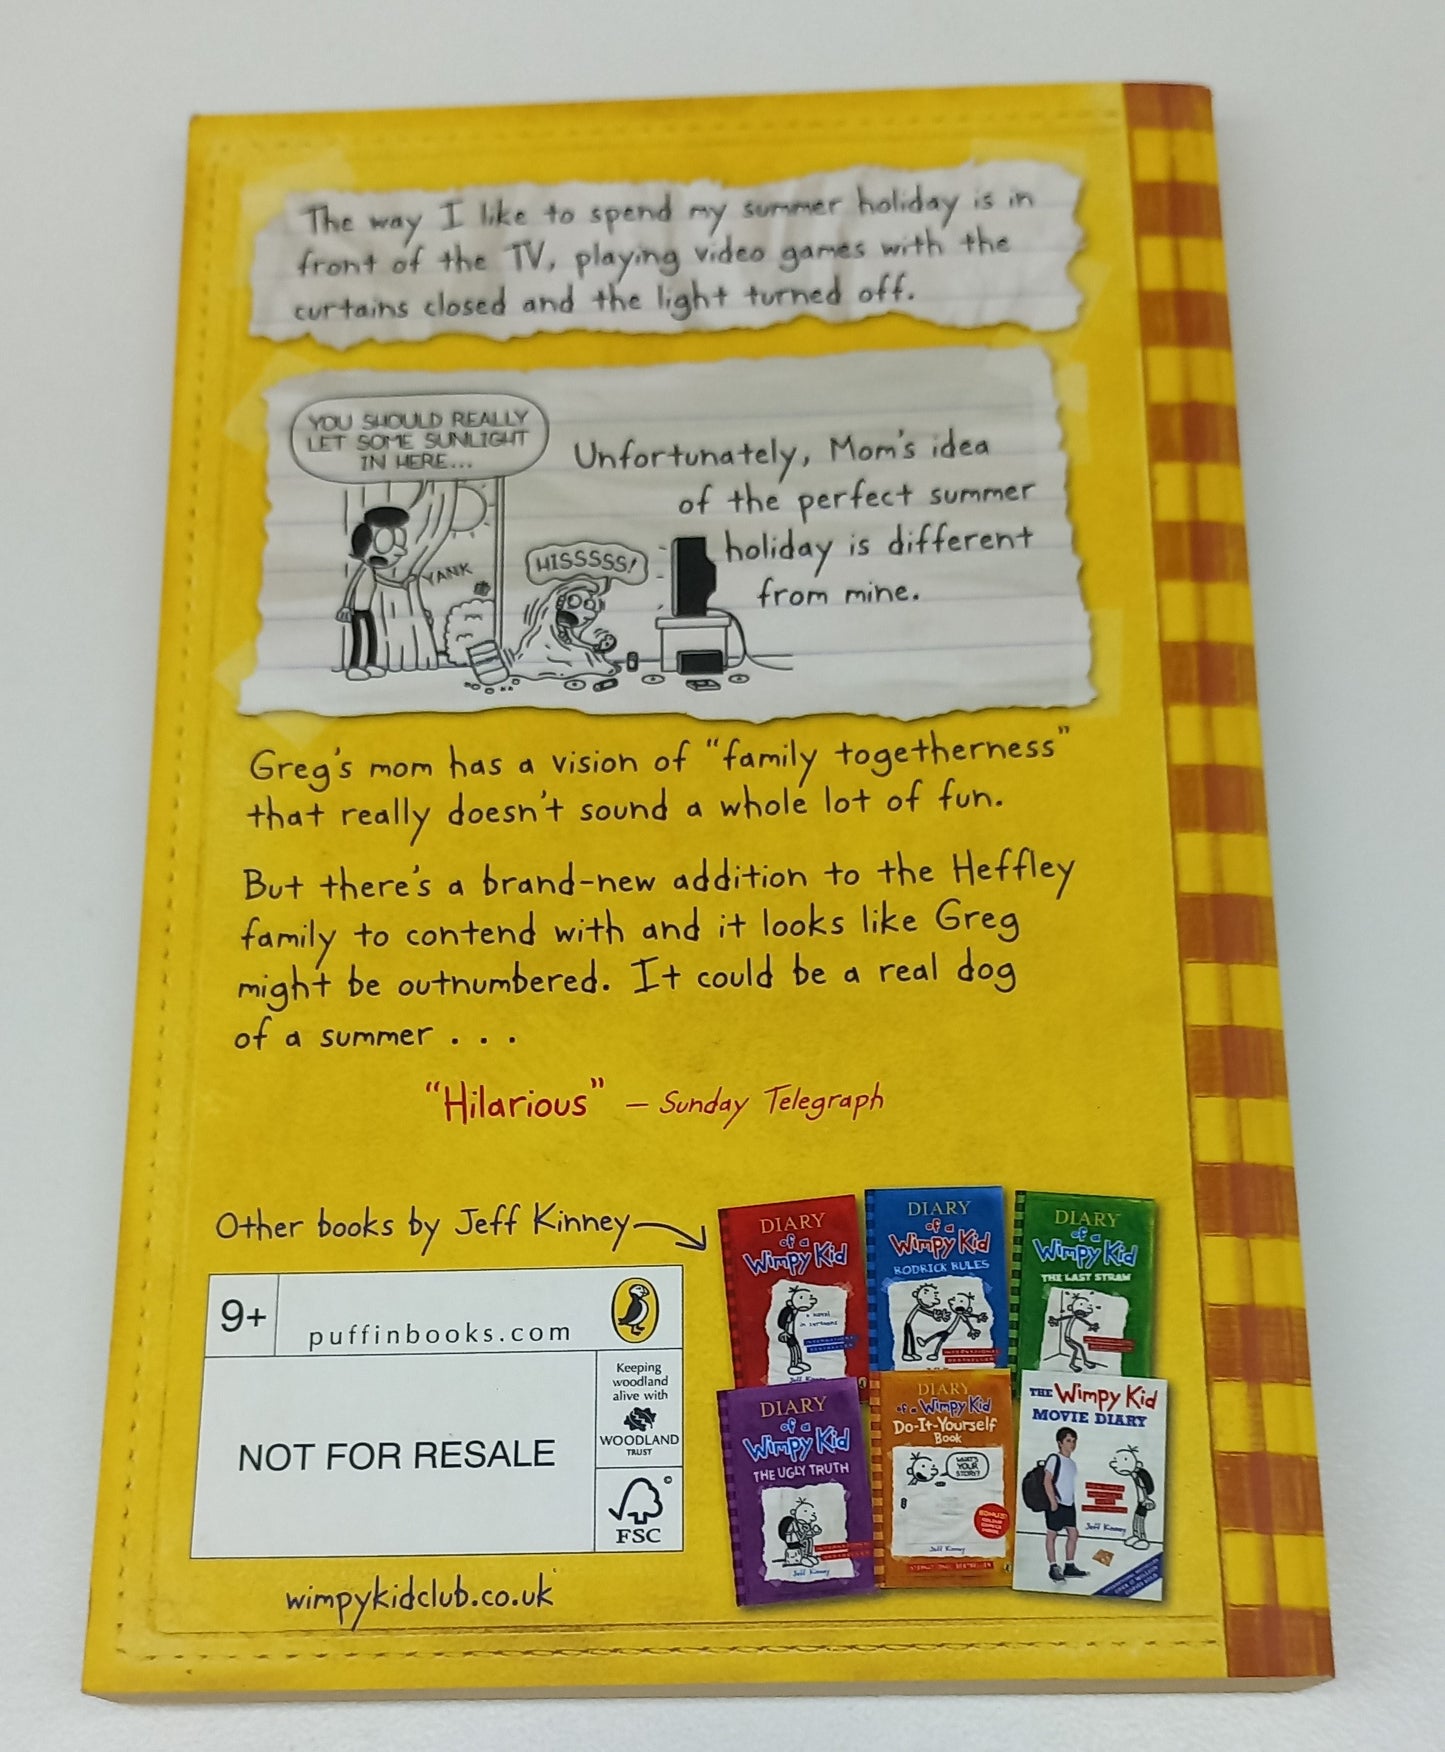 The way I like to spend my summer holiday is in
front of the TV, playing video games with the
curtains closed and the light turned off.
YOU SHOULD REALLY
LET SOME SUNLIGHT
IN HERE...
Unfortunately, Mom's idea
of the perfect summer
holiday is different
from mine.
YANK
HISSSSS!
Greg's mom has a vision of "family togetherness"
that really doesn't sound a whole lot of fun.
But there's a brand-new addition to the Heffley
family to contend with and it looks like Greg
might be outnumbered. It could be a real dog
of a summer . . .
"Hilarious" – Sunday Telegraph
Other books by Jeff Kinney
9+
puffinbooks.com
Keeping
woodland
alive with
WOODLAND
TRUST
NOT FOR RESALE
©
FSC
wimpykidclub.co.uk
DIARY
of a
Wimpy Kid
a novel
in cartoons
INTERNATIONAL
BESTSELLER
Jeff Kinney
DIARY
of a
Wimpy Kid
RODRICK RULES
INTERNATIONAL
BESTSELLER
DIARY
of a
Wimpy Kid
THE LAST STRAW
DIARY
of a
Wimpy Kid
THE UGLY TRUTH
Jeff Kinney
DIARY
of a Wimpy Kid
Do-It-Yourself
Book
WHAT'S
YOUR
STORY?
BONUS!
Jeff Kinney
THE Wimpy Kid
MOVIE DIARY
Jeff Kinney